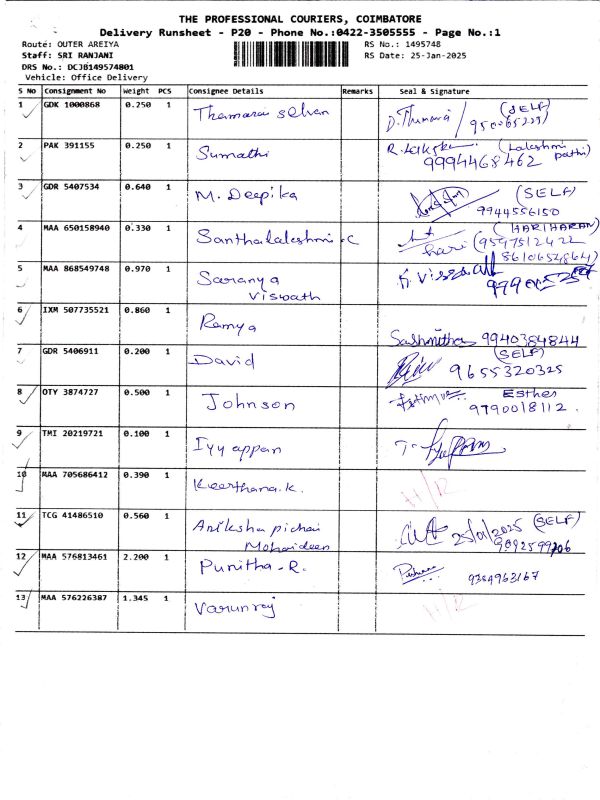 THE PROFESSIONAL COURIERS, COIMBATORE
Delivery Runsheet - P20 - Phone No.:0422-3505555 - Page No.:1
Route: OUTER AREIYA
RS No.: 1495748
Staff: SRI RANJANI
RS Date: 25-Jan-2025
DRS No.: DCJB149574801
Vehicle: Office Delivery
S No Consignment No Weight PCS Consignee Details Remarks Seal & Signature
1 GDK 1000868 0.250 1 Thamarai selvan (SELF)
2 PAK 391155 0.250 1 Sumathi (Lakshmi pathi)
9994468462
3 GDR 5407534 0.640 1 M. Deepika (SELF)
9944556150
4 MAA 650158940 0.330 1 Santhalakshmi.C (HARIHARAN)
hari (9597512422
8610652864)
5 MAA 868549748 0.970 1 Saranya
Viswath
6 IXM 507735521 0.860 1 Ramya
Sashmitha 9940384844
7 GDR 5406911 0.200 1 David (SELF)
9655320325
8 OTY 3874727 0.500 1 Johnson Esther
9790018112.
9 TMI 20219721 0.100 1 Iyyappan
10 MAA 705686412 0.390 1 Keerthana.K. H/R
11 TCG 41486510 0.560 1 Aniksha pichai
Mohaideen
25/01/2025 (SELF)
12 MAA 576813461 2.200 1 Punitha.R.
9384963167
13 MAA 576226387 1.345 1 Varunraj H/R